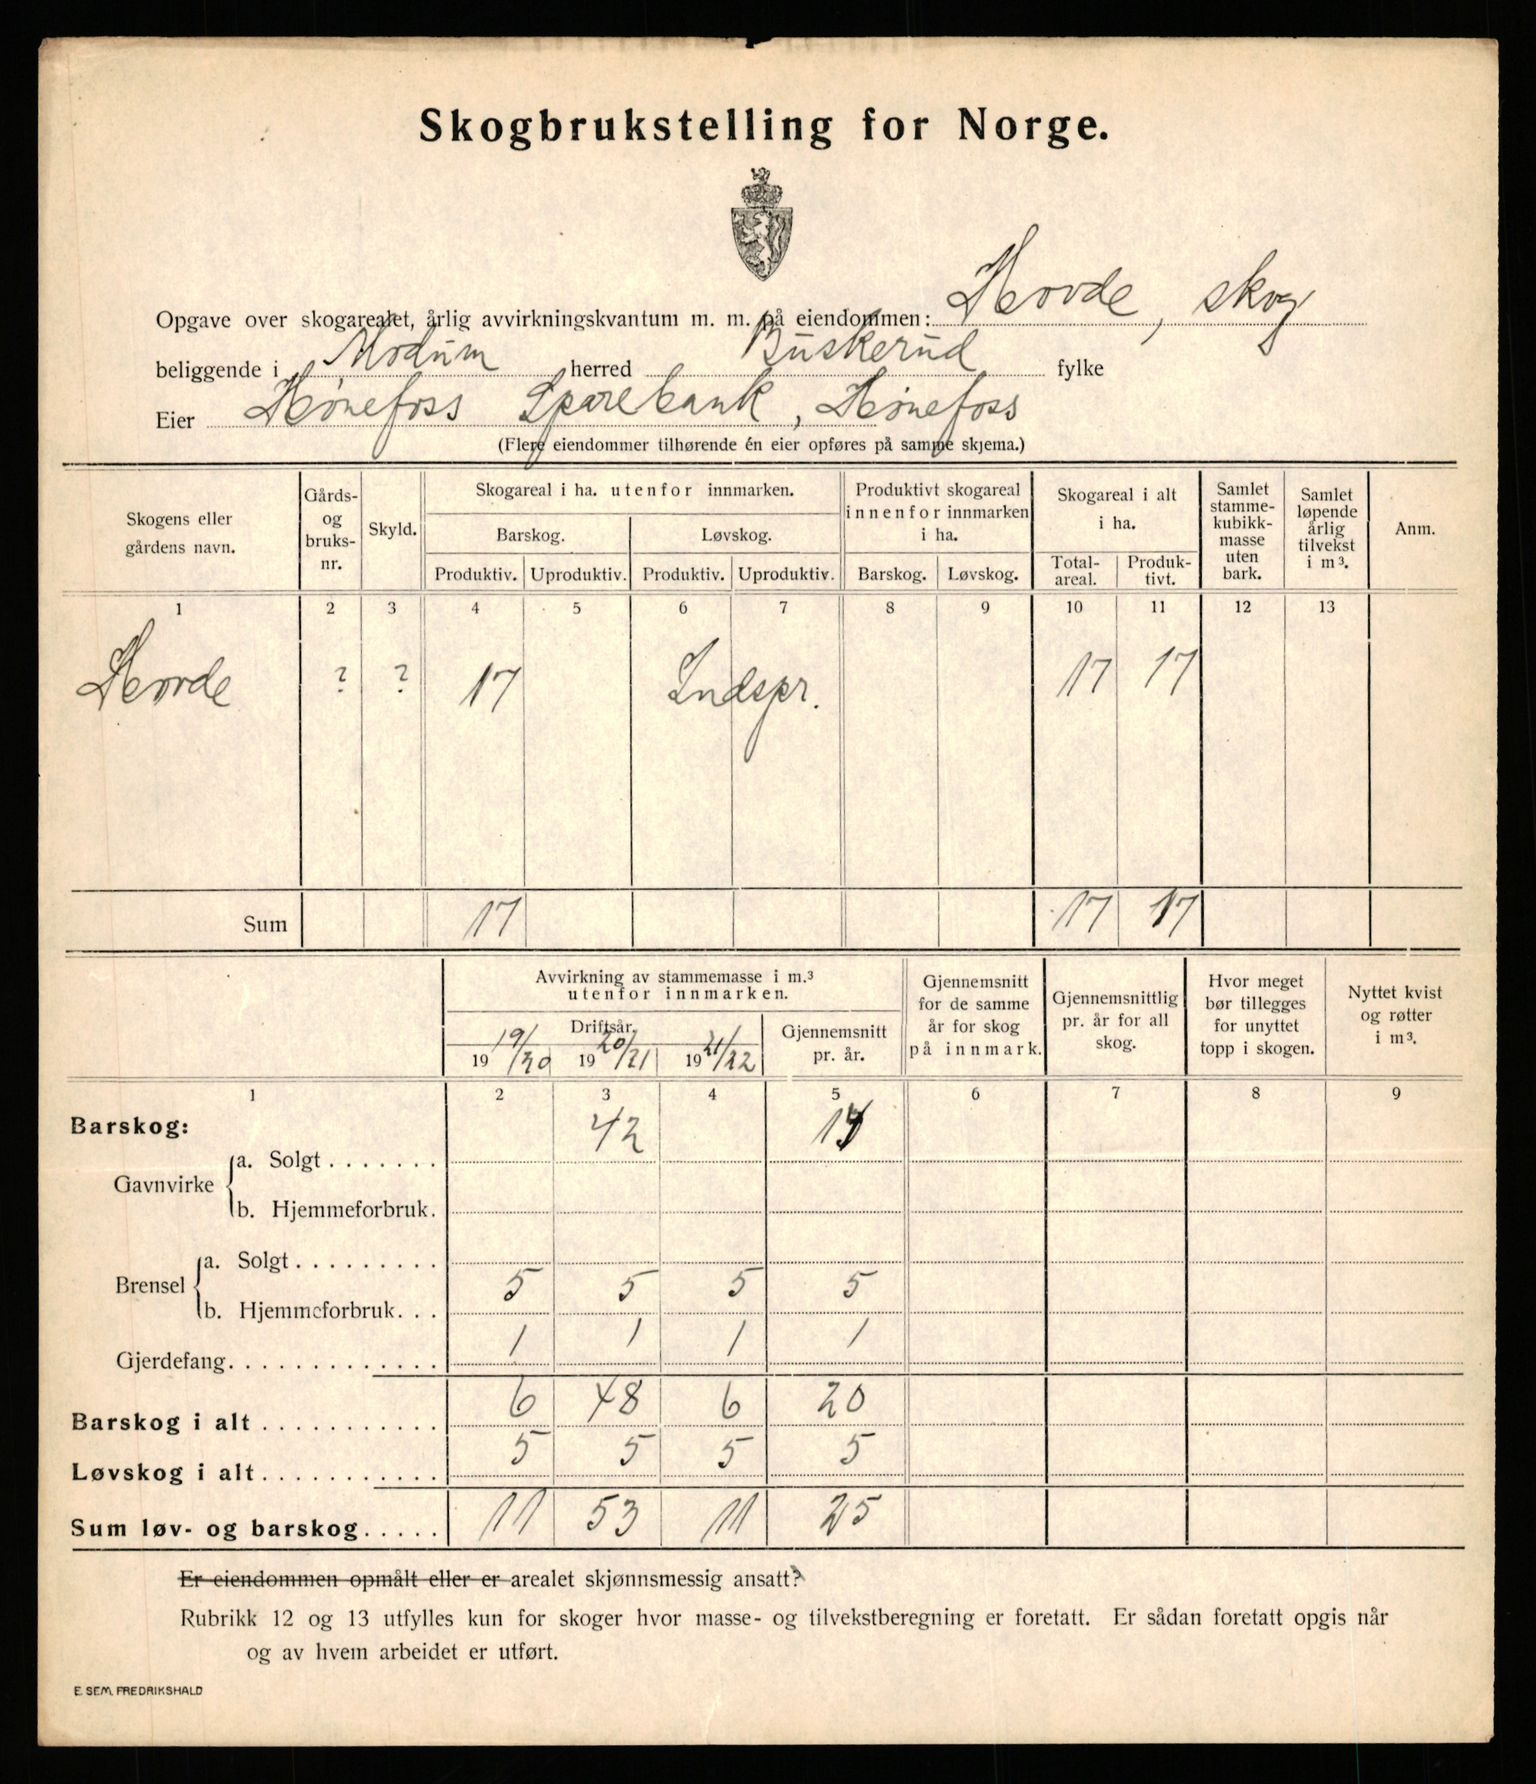 Skogbrukstelling for Norge.
Opgave over skogarealet, årlig avvirkningskvantum m. m. på eiendommen: Hovde, skog
beliggende i Modum herred Buskerud fylke
Eier Hønefoss Sparebank, Hønefoss
(Flere eiendommer tilhørende én eier opføres på samme skjema.)
Skogens eller gårdens navn. Gårds- og bruks- nr. Skyld. Skogareal i ha. utenfor innmarken. Produktivt skogareal innenfor innmarken i ha. Skogareal i alt i ha. Samlet stamme- kubikk- masse uten bark. Samlet løpende årlig tilvekst i m³. Anm.
Barskog. Løvskog.
Produktiv. Uproduktiv. Produktiv. Uproduktiv. Barskog. Løvskog. Total- areal. Produk- tivt.
1 2 3 4 5 6 7 8 9 10 11 12 13
Hovde ? ? 17 Indspr. 17 17
Sum 17 17 17
Avvirkning av stammemasse i m.³ utenfor innmarken. Gjennemsnitt for de samme år for skog på innmark. Gjennemsnittlig pr. år for all skog. Hvor meget bør tillegges for unyttet topp i skogen. Nyttet kvist og røtter i m³.
Driftsår.
19 19/20 19 20/21 19 21/22 Gjennemsnitt pr. år.
1 2 3 4 5 6 7 8 9
Barskog: 42
Gavnvirke a. Solgt . . . . . . .
b. Hjemmeforbruk.
Brensel a. Solgt . . . . . . . . .
b. Hjemmeforbruk. . . 5 5 5 5
Gjerdefang. . . . . . . . . . . . . 1 1 1 1
Barskog i alt . . . . . . . . . . . 6 48 6 20
Løvskog i alt . . . . . . . . . . . 5 5 5 5
Sum løv- og barskog . . . . . 11 53 11 25
Er eiendommen opmålt eller er arealet skjønnsmessig ansatt?
Rubrikk 12 og 13 utfylles kun for skoger hvor masse- og tilvekstberegning er foretatt. Er sådan foretatt opgis når
og av hvem arbeidet er utført.
E. SEM, FREDRIKSHALD